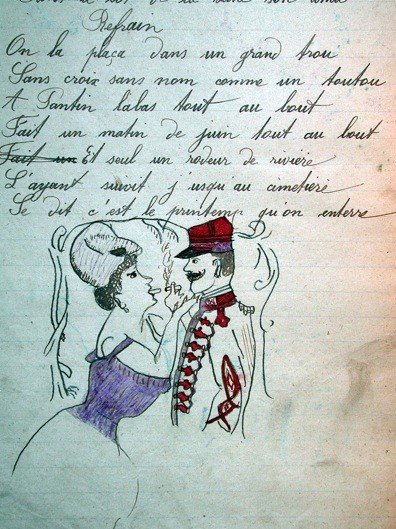 Refrain
On la plaça dans un grand trou
Sans croix sans nom comme un toutou
A Pantin labas tout au bout
Fait un matin de juin tout au bout
Fait un Et seul un rodeur de rivière
L'ayant suivit jusqu'au cimetière
Se dit c'est le printemp qu'on enterre